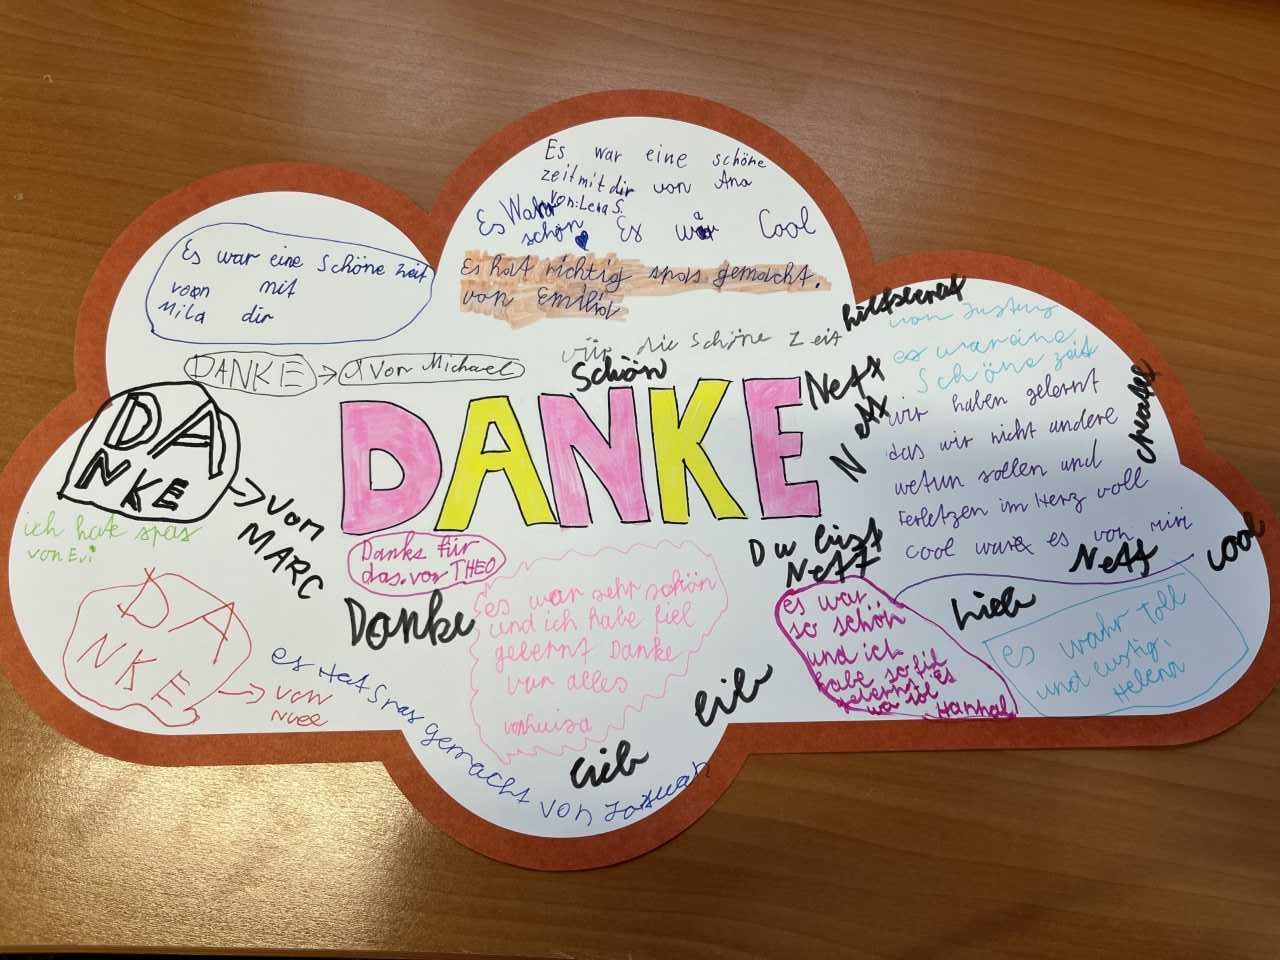 Es war eine schöne
zeit mit dir von Ana
von: Lena S.
Es Wahr
schön
Es war Cool
Es hat richtig spas gemacht.
von Emilia
Es war eine Schöne zeit
von mit
Mila dir
DANKE
Von Michael
vür die schöne Zeit
Schön
DANKE
DA
NKE
von
MARC
ich hate spas
von Evi
DA
NKE
von
Noel
Danke für
das. von THEO
Danke
es Hat Spas gemacht von
es war sehr schön
und ich habe fiel
gelernt Danke
vür alles
von Luisa
lieb
lieb
hilfsbereit
von Justus
es war eine
Schöne zeit
Nett
Nett
wir haben gelernt
das wir nicht andere
wetun sollen und
ferletzen im Herz voll
cool war es von miri
kreatif
cool
Du bist
Nett
Nett
Lieb
es war
so schön
und ich
habe so fil
gelernt
Hannah
es wahr Toll
und lustig.
Helena